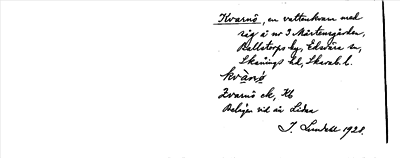 Kvarnö, en vattenkvarn med
såg å nr 3 Mårtensgården,
Ballstorps by, Edsvära sn,
Skånings hd, Skarab. l.
kvànö
Kvarnö ck, Kb
Belägen vid ån Lidan
J. Lundell 1928.